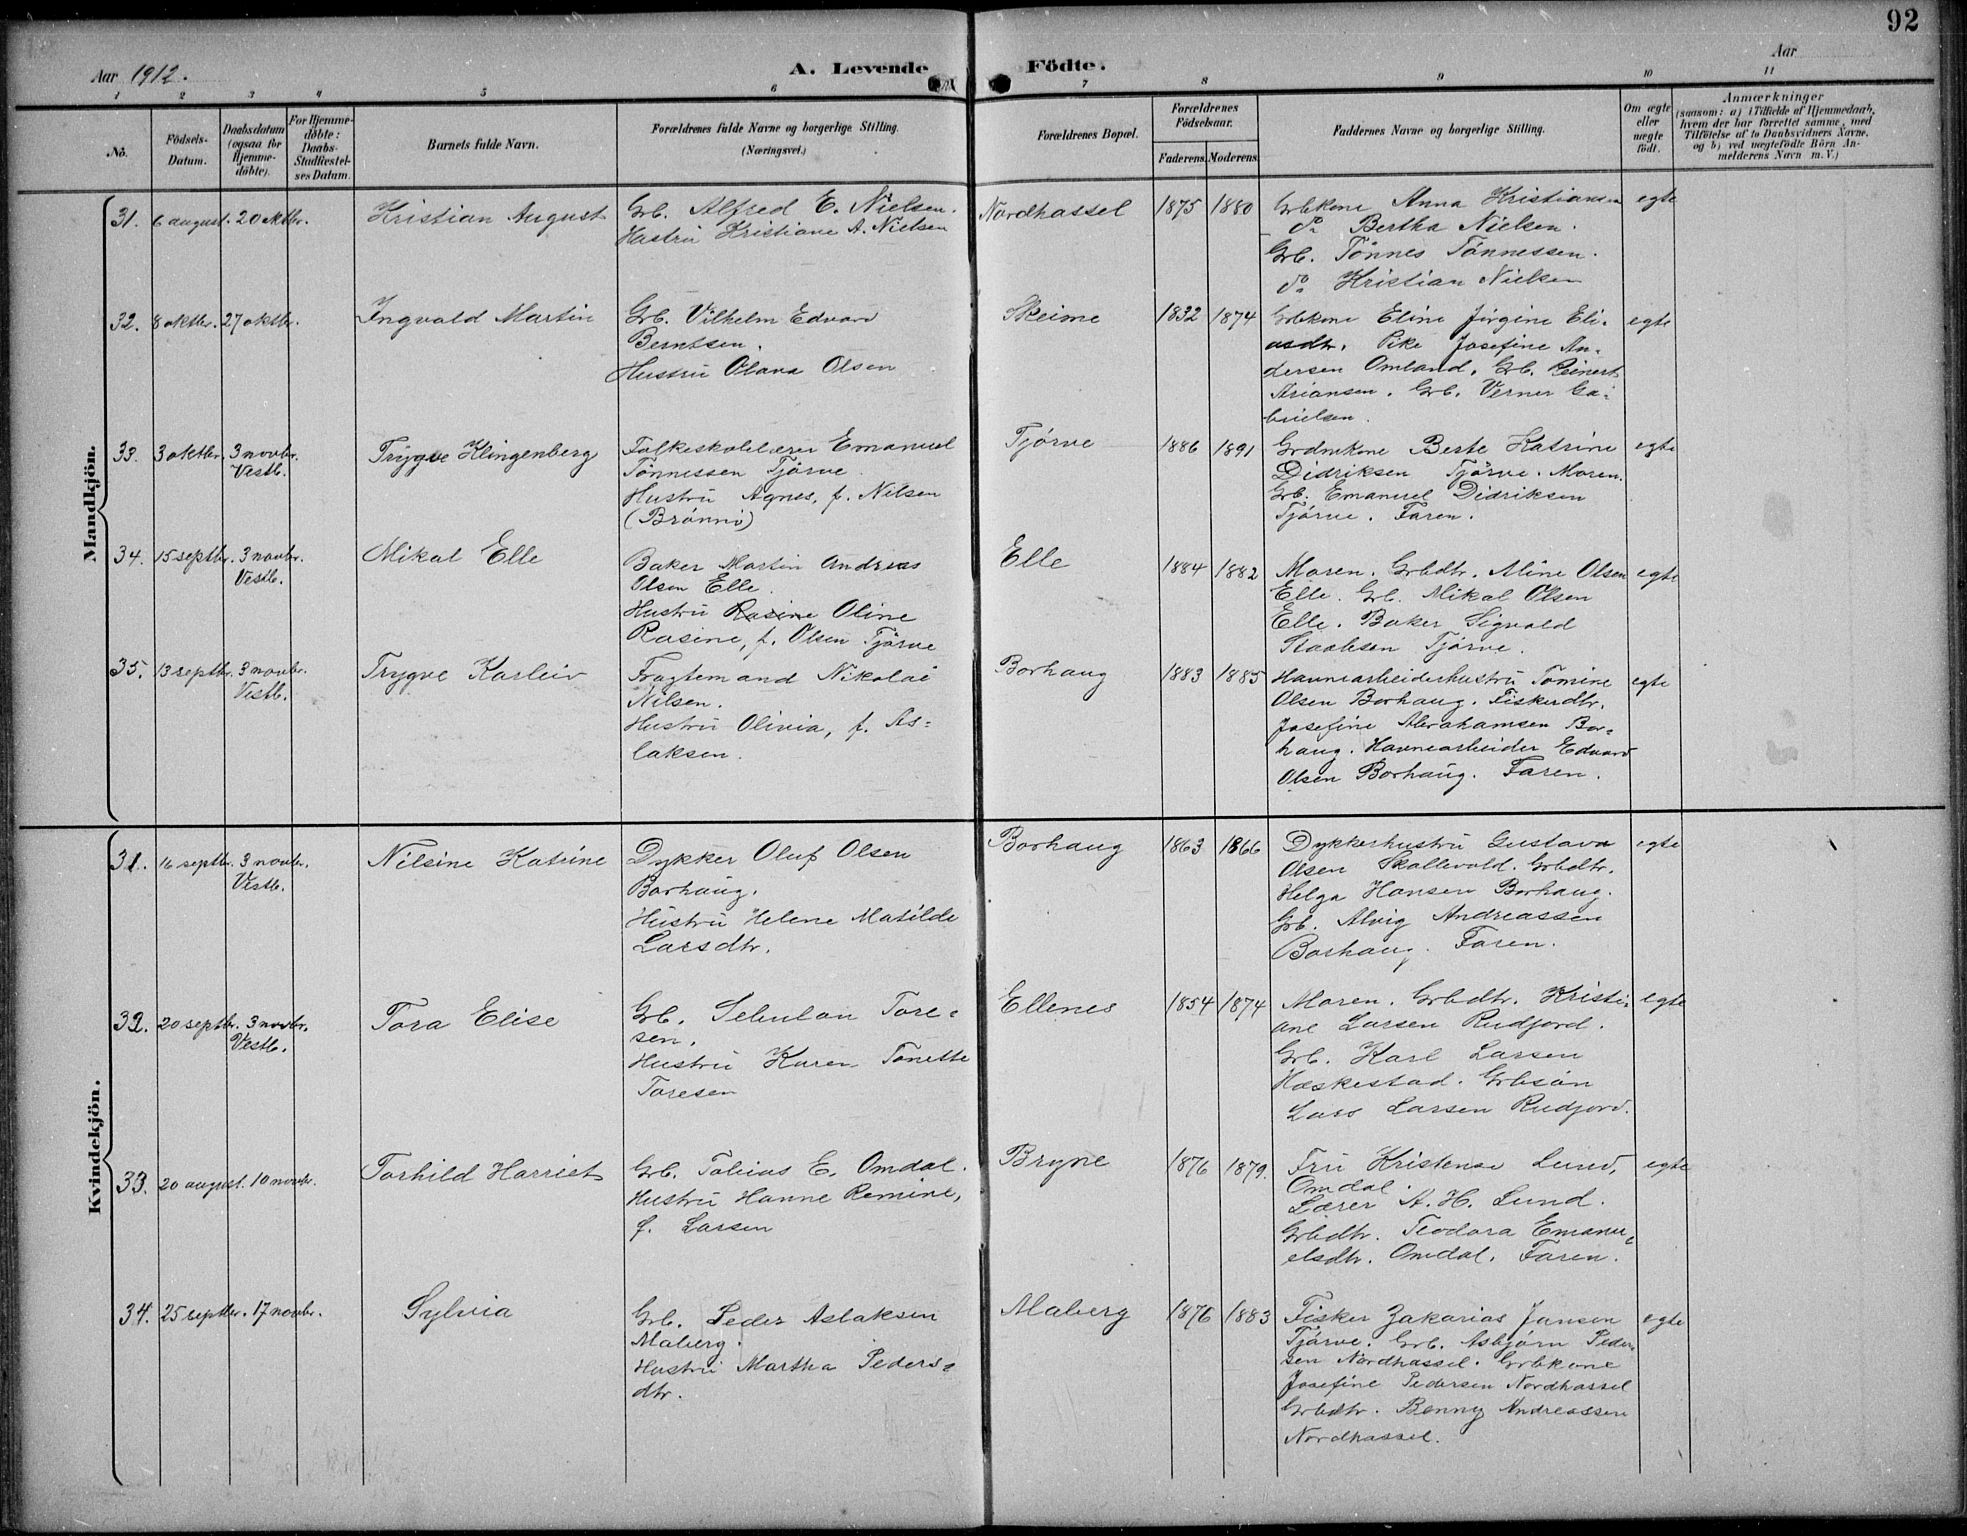 92
Aar 1912.
A. Levende
Födte.
Aar
1 2 3 4 5 6 7 8 9 10 11
No.
Födsels-Datum.
Daabsdatum (ogsaa for Hjemme-döbte).
For Hjemme-döbte: Daabs-Stadfæstel-ses Datum.
Barnets fulde Navn.
Forældrenes fulde Navne og borgerlige Stilling.
(Næringsvei.)
Forældrenes Bopæl.
Forældrenes Födselsaar.
Faderens. Moderens.
Faddernes Navne og borgerlige Stilling.
Om ægte eller uægte födt.
Anmærkninger
(saasom: a) i Tilfælde af Hjemmedaab, hvem der har forrettet samme, med Tilföielse af to Daabsvidners Navne, og b) ved uægtefödte Börn An-melderens Navn m. V.)
Mandkjön.
31. 6 august. 20 oktbr. Kristian August
Grb. Alfred E. Nielsen.
Hustru Kristiane A. Nielsen
Nordhassel 1875 1880
Grbkone Anna Kristiansen
do Bertha Nielsen.
Grb. Tönnes Tönnessen.
do Kristian Nielsen
egte
32. 8 oktbr. 27 oktbr. Ingvald Martin
Grb. Vilhelm Edvard
Berntsen.
Hustru Olava Olsen
Skeime 1832 1874
Grbkone Eline Jirgine Eli-
asdtr. Pike Josefine An-
dersen Omland. Grb. Reinert
Ariansen. Grb. Verner Ga-
brielsen.
egte
33. 3 oktbr. 3 novbr. Vestb. Trygve Klingenberg
Folkeskolelærer Emanuel
Tönnessen Tjörve.
Hustru Agnes, f. Nilsen
(Brönnö)
Tjörve 1886 1891
Grdmkone Berte Katrine
Didriksen Tjörve. Moren.
Grb. Emanuel Didriksen
Tjörve. Faren.
egte
34. 15 septbr. 3 novbr. Vestb. Mikal Elle
Baker Martin Andreas
Olsen Elle.
Hustru Rasine Oline
Rasine, f. Olsen Tjörve
Elle 1884 1882
Moren. Grbdtr. Aline Olsen
Elle. Grb. Mikal Olsen
Elle. Baker Sigvald
Staalesen Tjörve.
egte
35. 13 septbr. 3 novbr. Vestb. Trygve Karleiv
Fragtemand Nikolai
Nilsen.
Hustru Olivia, f. As-
laksen.
Borhaug 1883 1885
Havnearbeiderhustru Tomine
Olsen Borhaug. Fiskerdtr.
Josefine Abrahamsen Bor-
haug. Havnearbeider Edvard
Olsen Borhaug. Faren.
egte
Kvindekjön.
31. 16 septbr. 3 novbr. Vestb. Nilsine Katrine
Dykker Oluf Olsen
Borhaug.
Hustru Helene Matilde
Larsdtr.
Borhaug 1863 1866
Dykkerhustru Gustava
Olsen Skollevold. Grbdtr.
Helga Hansen Borhaug.
Grb. Alvig Andreassen
Borhaug. Faren.
egte
32. 20 septbr. 3 novbr. Vestb. Tora Elise
Grb. Sebulon Tore-
sen.
Hustru Karen Tonette
Toresen
Ellenes 1854 1874
Moren. Grbdtr. Kristi-
ane Larsen Rudjord.
Grb. Karl Larsen
Hæskestad. Grbsön
Lars Larsen Rudjord.
egte
33. 20 august. 10 novbr. Torhild Harriet
Grb. Tobias E. Omdal.
Hustru Hanne Remine,
f. Larsen
Bryne 1876 1879.
Fru Kristense Lund,
Omdal.
Lærer A. H. Lund.
Grbdtr. Teodora Emanu-
elsdtr. Omdal. Faren.
egte
34. 25 septbr. 17 novbr. Sylvia
Grb. Peder Aslaksen
Maberg.
Hustru Martha Peders-
dtr.
Maberg 1876 1883
Fisker Zakarias Jansen
Tjörve. Grb. Asbjörn Peder-
sen Nordhassel. Grbkone
Josefine Pedersen Nordhassel
Grbdtr. Benny Andreassen
Nordhassel.
egte